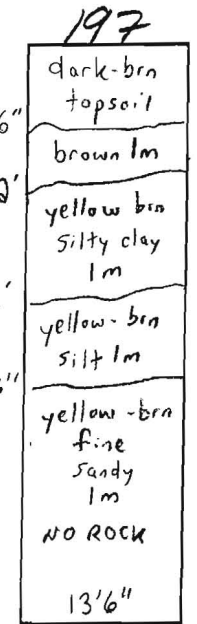 197
dark-brn
topsoil
6"
brown lm
2'
yellow brn
silty clay
lm
'
yellow-brn
silt lm
"
yellow-brn
fine
sandy
lm
NO ROCK
13'6"